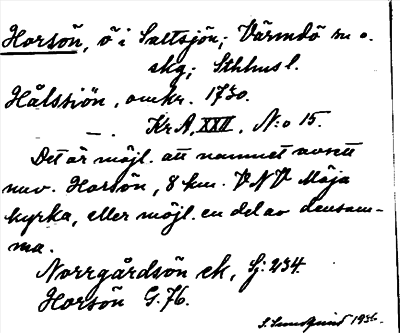 Horsön, ö i Saltsjön; Värmdö sn o.
skg; Sthlms l.
Hålssiön, omkr. 1730.
— . Kr A, XXII, N:o 15.
Det är möjl. att namnet avsett
nuv. Horsön, 8 km. VNV Möja
kyrka, eller möjl. en del av densam-
ma.
Norrgårdsön ek, Gj: 234.
Horsön G. 76.